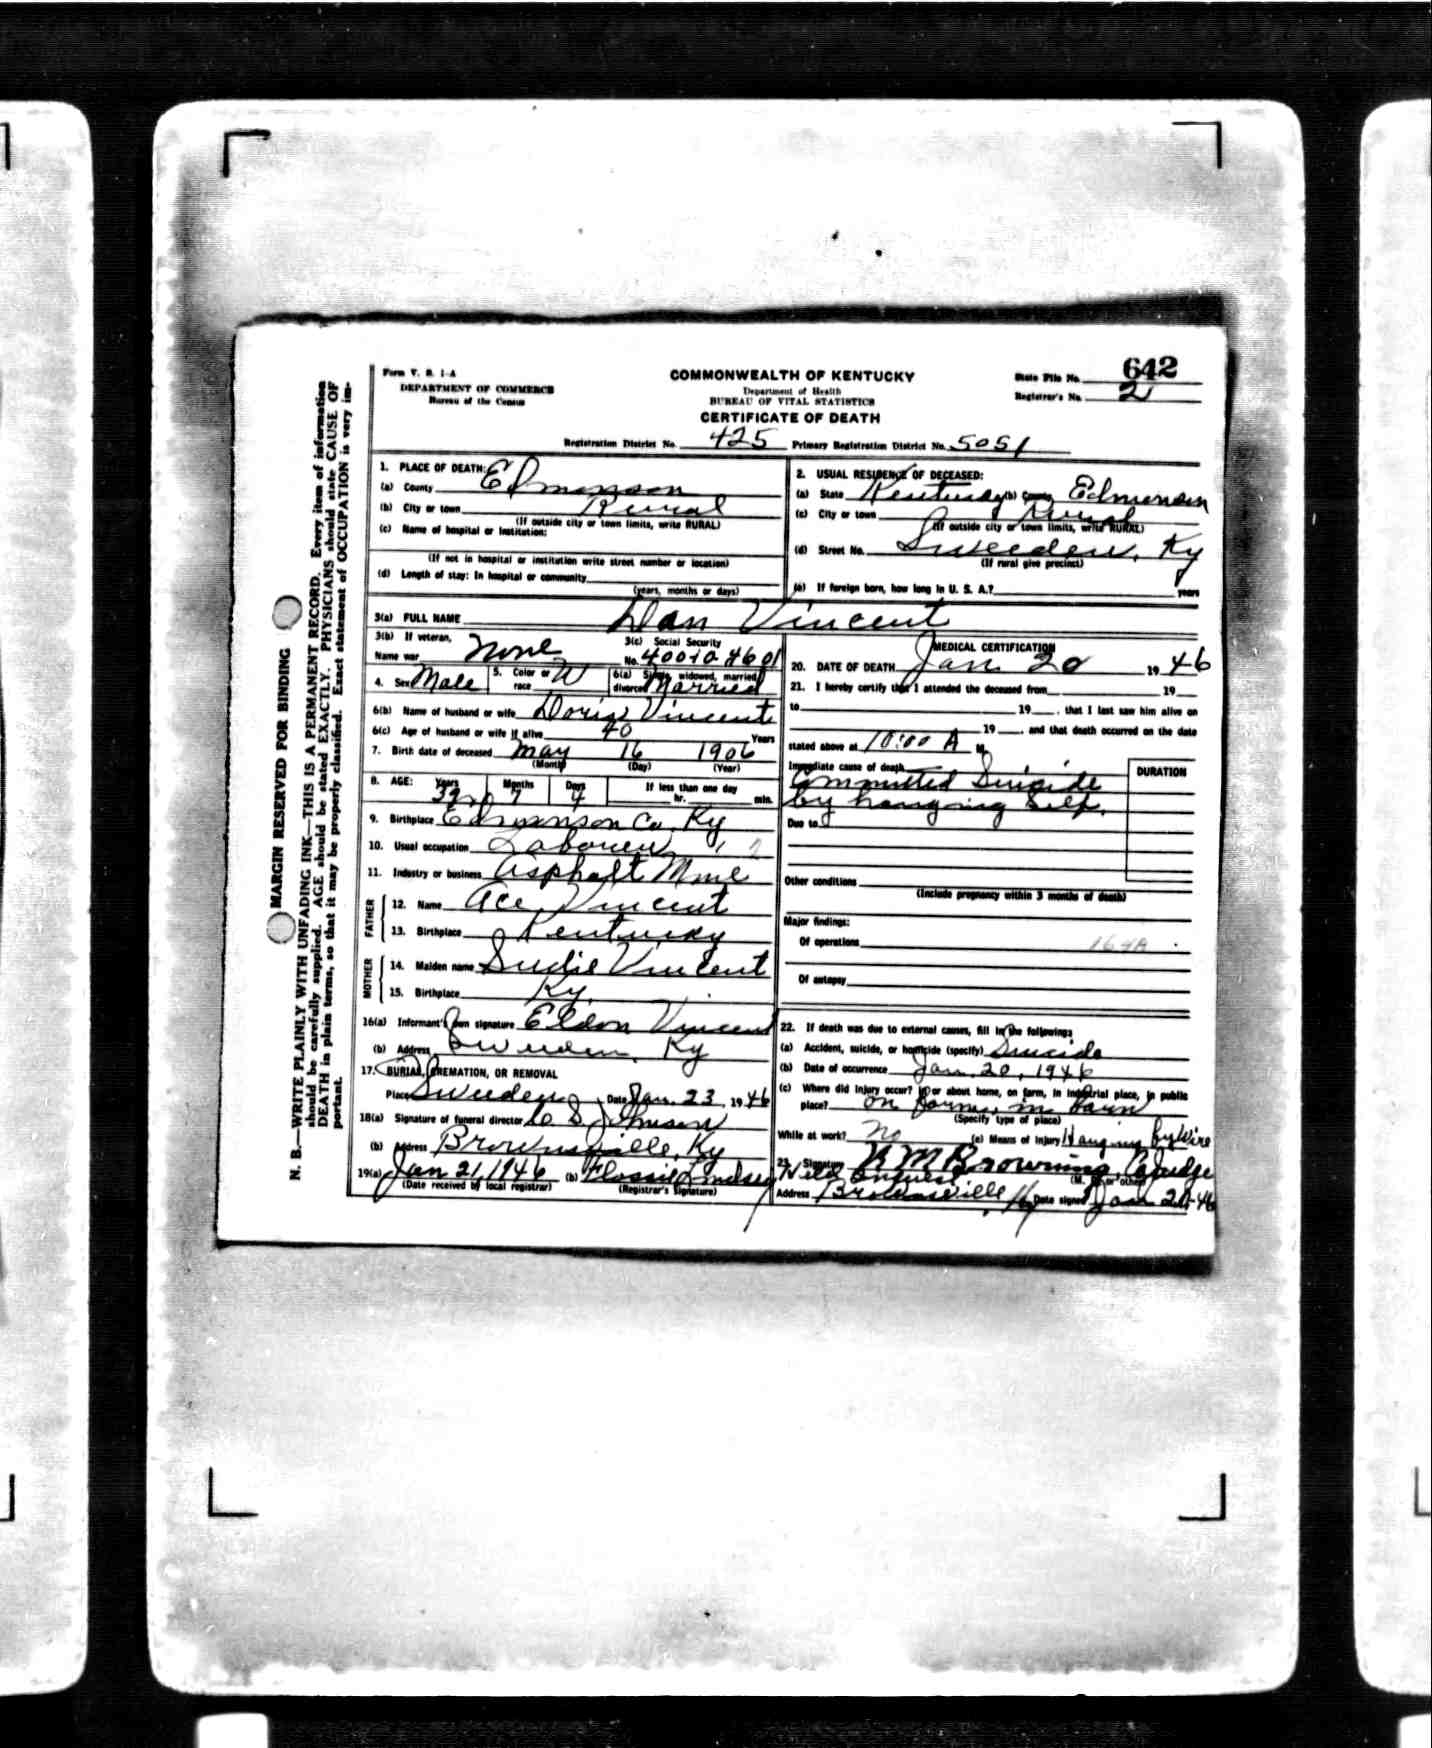 Form V. S. 1-A
DEPARTMENT OF COMMERCE
Bureau of the Census
COMMONWEALTH OF KENTUCKY
Department of Health
BUREAU OF VITAL STATISTICS
CERTIFICATE OF DEATH
State File No. 642
Registrar's No. 2
Registration District No. 425 Primary Registration District No. 5051
MARGIN RESERVED FOR BINDING
N. B.—WRITE PLAINLY WITH UNFADING INK—THIS IS A PERMANENT RECORD. Every item of information
should be carefully supplied. AGE should be stated EXACTLY. PHYSICIANS should state CAUSE OF
DEATH in plain terms, so that it may be properly classified. Exact statement of OCCUPATION is very im-
portant.
1. PLACE OF DEATH:
(a) County Edmonson
(b) City or town Rural
(If outside city or town limits, write RURAL)
(c) Name of hospital or institution:
(If not in hospital or institution write street number or location)
(d) Length of stay: In hospital or community
(years, months or days)
2. USUAL RESIDENCE OF DECEASED:
(a) State Kentucky (b) County Edmonson
(c) City or town Rural
(If outside city or town limits, write RURAL)
(d) Street No. Sweeden, Ky
(If rural give precinct)
(e) If foreign born, how long in U. S. A.? years
3(a) FULL NAME Dan Vincent
3(b) If veteran,
Name war None
3(c) Social Security
No. 400-10-4601
4. Sex Male 5. Color or race W 6(a) Single, widowed, married, divorced Married
6(b) Name of husband or wife Doris Vincent
6(c) Age of husband or wife if alive 40 Years
7. Birth date of deceased May 16 1906
(Month) (Day) (Year)
8. AGE: Years 39 Months 7 Days 4 If less than one day
hr. min.
9. Birthplace Edmonson Co. Ky
10. Usual occupation Laborer
11. Industry or business Asphalt Mine
FATHER
12. Name Ace Vincent
13. Birthplace Kentucky
MOTHER
14. Maiden name Sudie Vincent
15. Birthplace Ky.
16(a) Informant's own signature Eldon Vincent
(b) Address Sweeden, Ky
17. BURIAL, CREMATION, OR REMOVAL
Place Sweeden Date Jan. 23, 1946
18(a) Signature of funeral director C S Johnson
(b) Address Brownsville, Ky
19(a) Jan 21, 1946 (b) Flossie Lindsey
(Date received by local registrar) (Registrar's Signature)
MEDICAL CERTIFICATION
20. DATE OF DEATH Jan. 20 1946
21. I hereby certify that I attended the deceased from 19
to 19 , that I last saw him alive on
19 , and that death occurred on the date
stated above at 10:00 A M.
Immediate cause of death
Committed Suicide
by hanging Self.
DURATION
Due to
Other conditions
(Include pregnancy within 3 months of death)
Major findings:
Of operations 164A
Of autopsy
22. If death was due to external causes, fill in the following:
(a) Accident, suicide, or homicide (specify) Suicide
(b) Date of occurrence Jan. 20, 1946
(c) Where did injury occur? In or about home, on farm, in industrial place, in public
place? on farm, in barn
(Specify type of place)
While at work? No (e) Means of injury Hanging by Wire
23. Signature W M Browning, Co Judge
Held Inquest (M. D. or other)
Address Brownsville Ky Date signed Jan 20-46